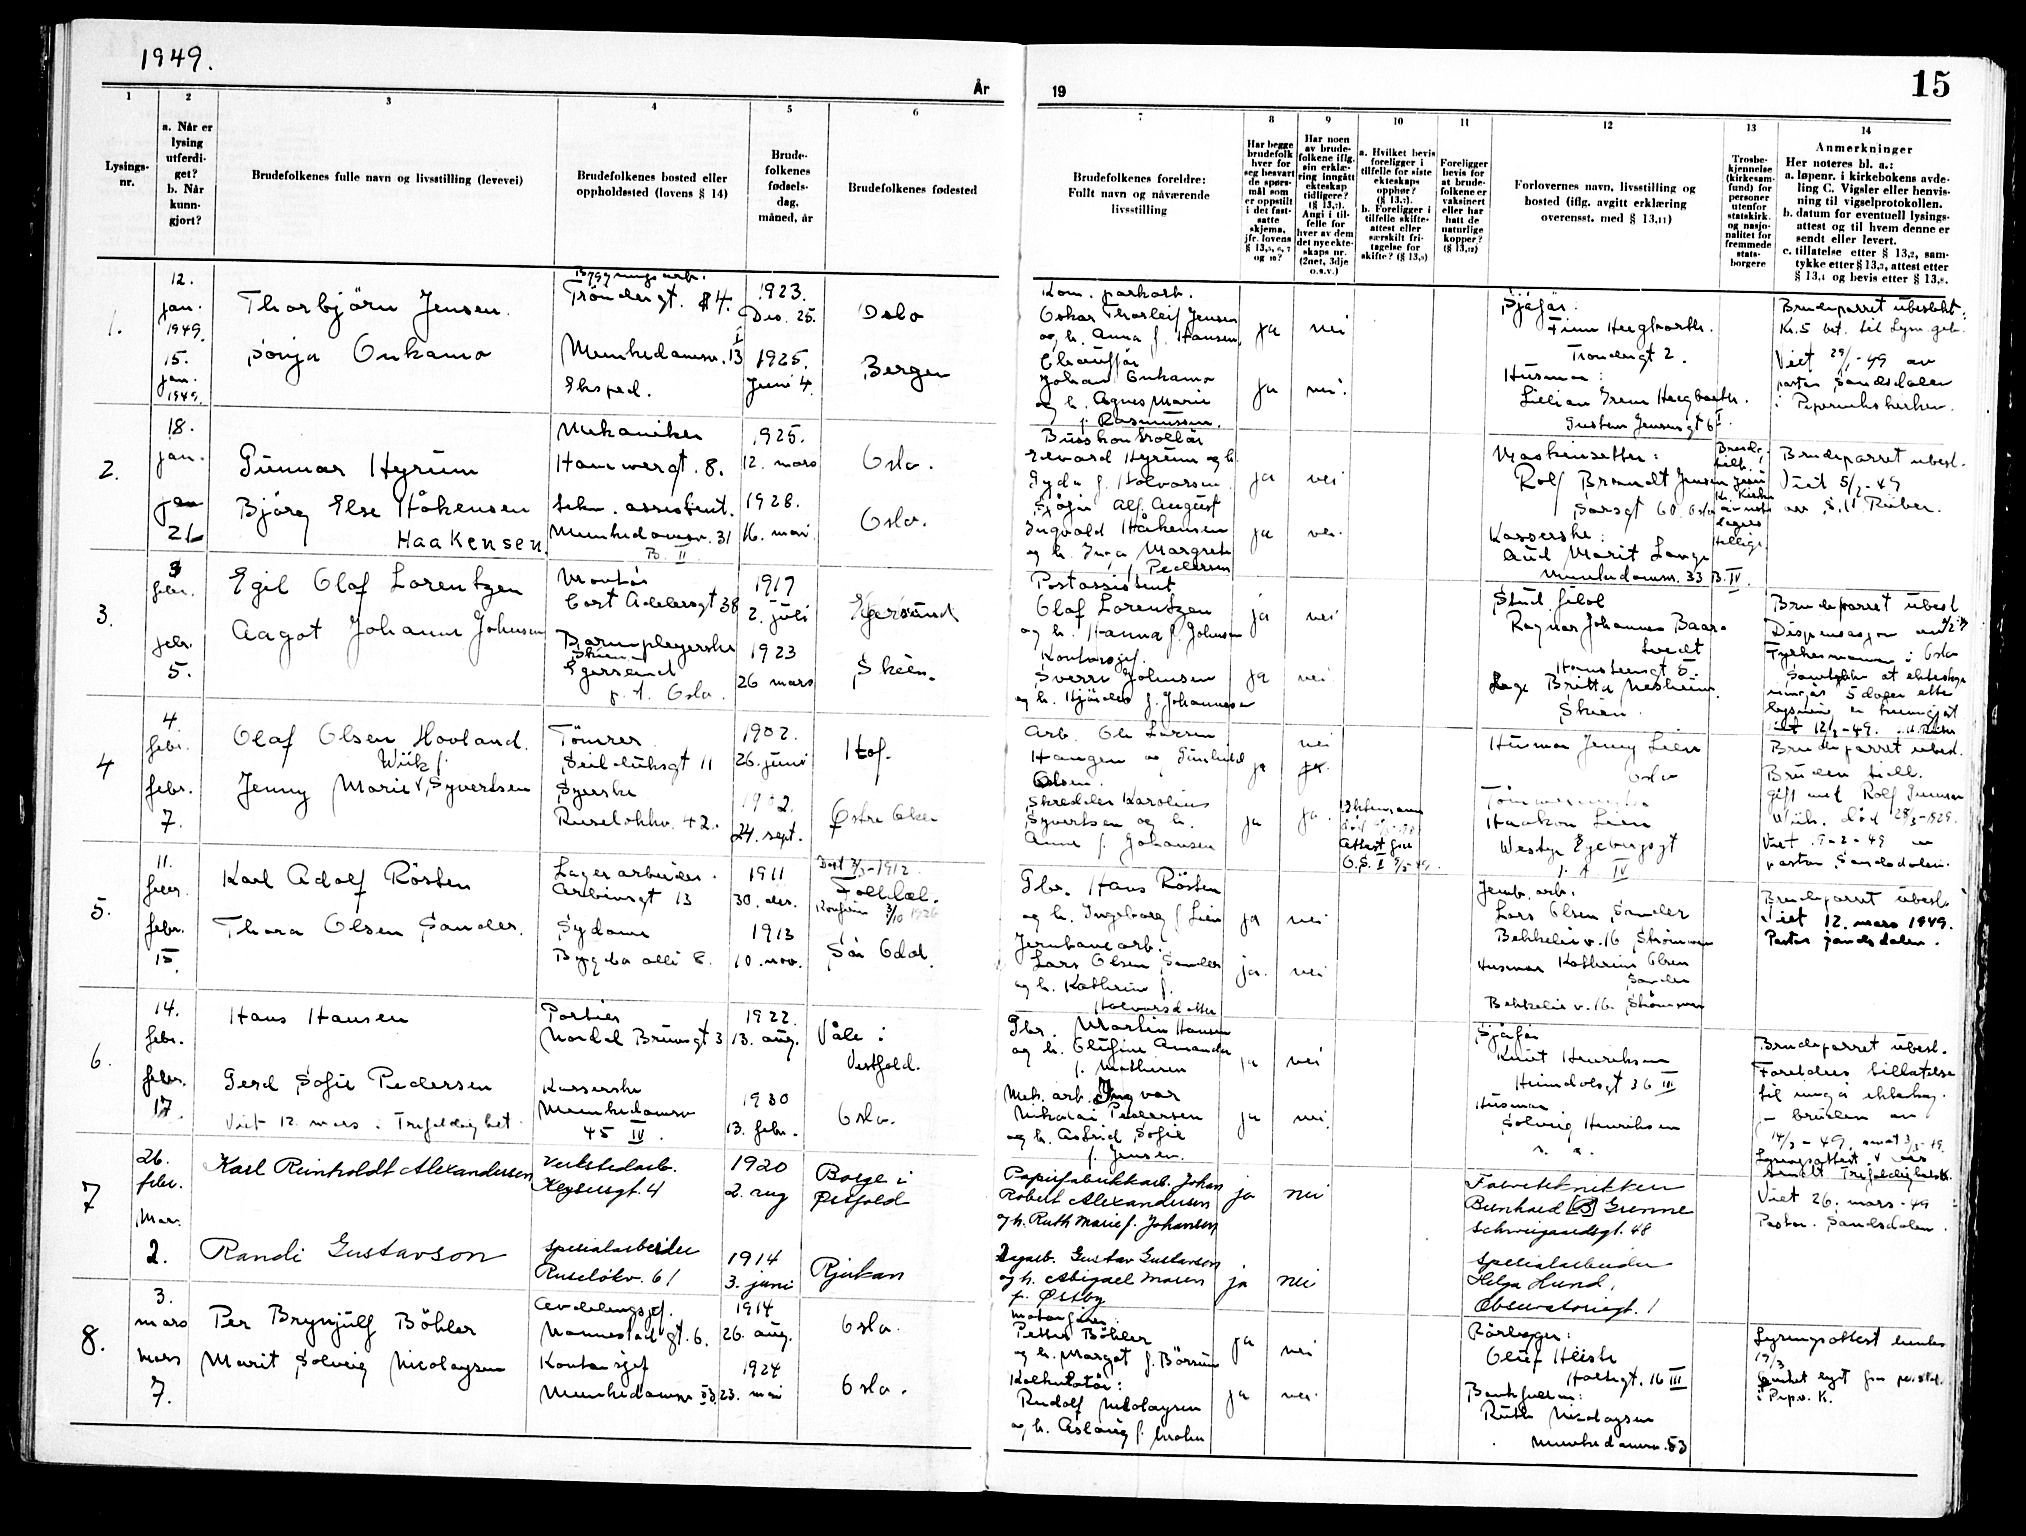 1949.
År
19
15
1
2
3
4
5
6
7
8
9
10
11
12
13
14
Lysings-
nr.
a. Når er
lysing
utferdi-
get?
b. Når
kunn-
gjort?
Brudefolkenes fulle navn og livsstilling (levevei)
Brudefolkenes bosted eller
oppholdssted (lovens § 14)
Brude-
folkenes
fødsels-
dag,
måned, år
Brudefolkenes fødested
Brudefolkenes foreldre:
Fullt navn og nåværende
livsstilling
Har begge
brudefolk
hver for
seg besvart
de spørs-
mål som
er oppstilt
i det fast-
satte
skjema,
jfr. lovens
§ 13,5, 6, 7
og 10?
Har noen
av brude-
folkene iflg.
sin erklæ-
ring inngått
ekteskap
tidligere?
(§ 13,7).
Angi i til-
felle for
hver av dem
det nye ekte-
skaps nr.
(2net, 3dje
o.s.v.)
a. Hvilket bevis
foreligger i
tilfelle for siste
ekteskaps
opphør?
(§ 13,7).
b. Foreligger i
tilfelle skifte-
attest eller
særskilt fri-
tagelse for
skifte? (§ 13,9)
Foreligger
bevis for
at brude-
folkene er
vaksinert
eller har
hatt de
naturlige
kopper?
(§ 13,12)
Forlovernes navn, livsstilling og
bosted (iflg. avgitt erklæring
overensst. med § 13,11)
Trosbe-
kjennelse
(kirkesam-
fund) for
personer
utenfor
statskirk.
og nasjo-
nalitet for
fremmede
stats-
borgere
Anmerkninger
Her noteres bl. a.:
a. løpenr. i kirkebokens avde-
ling C. Vigsler eller henvis-
ning til vigselprotokollen.
b. datum for eventuell lysings-
attest og til hvem denne er
sendt eller levert.
c. tillatelse etter § 13,2, sam-
tykke etter § 13,3, attest etter
§ 13,4 og bevis etter § 13,8.
1.
12.
jan.
1949.
15.
jan.
1949.
Thorbjörn Jensen.
Sonja Onkamo
Bygningsarb.
Tröndergt. 4.
Munkedamsv. 13
Eksped.
1923.
Des. 25.
1925.
Juni 4.
Oslo
Bergen
Kom. parkarb.
Oskar Thorleif Jensen
og h. Anna f. Hansen.
Chauffør
Johan Onkamo
og h. Agnes Marie
f. Rasmussen.
ja
nei
ja
nei.
Sjåfør.
Finn
Trondergt 2.
Husmor:
Lilian
Gustav Jensensgt 6
Brudeparret ubeslekt.
Kr. 5 bet. til Lysn. geb.
Viet 29/1-49 av
pastor Sandsdalen
i Piperviks kirken.
2.
18.
jan.
jan
26
Gunnar Hyrum
Bjørg Else Håkensen
Haakensen.
Mekaniker
Hamwergt. 8.
assistent.
Munkedamsv. 31
B. II
1925.
12. mars
1928.
16. mai
Oslo.
Oslo.
Busskontrollör
Edvard Hyrum og h.
Gyda f. Halvorsen.
Sjåfør Alf August
Ingvald Håkensen
og h. Inga Margrete
f. Pedersen
ja
nei
ja
nei.
Maskinsetter:
Rolf Brandt Jensen
Sarsgt 60 Oslo
Kasserske:
Aud Marit Lange
Munkedamsv. 33 B. IV.
Jesu
Kr. Kirke
av siste
dagers
hellige
Brudeparret ubesl.
Viet 5/2-49
av S. U. Ruber.
3.
3
febr.
febr.
5.
Egil Olaf Lorentzen
Aagot Johanne Johnsen
Montör
Cort Adelersgt 38
Barnepleyerske
Skien
Egersund
p. t. Oslo.
1917
2. juli
1923
26 mars
Egersund
Skien.
Postassistent
Olaf Lorentzen
og h. Hanna f. Johnsen
Kontorsjef.
Sverre Johnsen
og h. Hjördis f. Johannesen
ja
nei
ja
nei
Stud. filol
Ragnar Johannes Baar-
tvedt
Homstensgt 5.
Britta Mesheim.
Skien.
Brudeparret ubesl.
Dispensasjon av
Fylkesmannen i Oslo
Samtykke at ekteskap
inngås 5 dager etter
lysning er kunngjort
viet 12/2-49.
4
4
febr.
febr.
7.
Olaf Olsen Hovland.
Wiik f.
Jenny Marie Syvertsen
Tömrer
Seilduksgt 11
Syerske
Ruselökkv. 42.
1902.
26. juni
1902.
24. sept.
Hof.
Östre Aker
Arb. Ole Larsen
Haugen og Gunhild
Olsen.
Skredder Karolius
Syvertsen og h.
Anne f. Johansen
ja
nei
ja
ja.
Ektemann
død
Attest fra
O.S. I 9/2-49.
Husmor Jenny Lien
Oslo
Haakon Lien
Westye Egebergsgt
IV
Brudeparret ubesl.
Bruden tidl.
gift med Rolf Gunnar
Wiik. död 28/3-1929.
Viet 9-2-49 av
pastor Sandsdalen.
5.
11.
febr.
febr.
15.
Karl Adolf Rösten
Thora Olsen Sander.
Lagerarbeider.
Arbinsgt 13
Sydame
Bygdø allé 8.
1911
30. des.
1913
10. nov.
Døpt 3/3-1912
Folldal.
Konfirm 3/10 1926
Sör Odal.
Gbr. Hans Rösten
og h. Ingeborg f. Lien
Jernbanearb.
Lars Olsen Sander
og h. Kathrine f.
Halvorsdatter
ja
nei
ja.
nei
Jernb. arb.
Lars Olsen Sander
Bekkeliv. 16 Strömmen
Husmor Kathrine Olsen
Sander
Bekkeliv. 16. Strömmen
Brudeparret ubesl.
Viet 12. mars 1949.
Pastor Sandsdalen.
6.
14.
febr.
febr.
17.
Hans Hansen
Gerd Sofie Pedersen
Viet 12. mars i Trefoldighet.
Portier
Nordal Brunsgt 3
Kasserske
Munkedamsv
45 IV.
1922.
13. aug.
1930
13. febr.
Våle i
Vestfold.
Oslo.
Gbr. Martin Hansen
og h. Olufine Amanda
f. Mathisen
Mek. arb. Ingvar
Nikolai Pedersen
og h. Astrid Sofie
f. Jensen.
ja
nei
ja
nei
Sjåför
Knut Henriksen
Heimdalsgt 36 III
Husmor
Solveig Henriksen
s. a.
Brudeparret ubesl.
Foreldres tillatelse
til inngå ekteskap.
f. bruden av
Lysningsattest
sendt Trefoldighetsk.
7
26.
febr.
Mar.
2.
Karl Reinholdt Alexandersen
Randi Gustavson
Verkstedarb.
Keysersgt. 4
Spesialarbeider
Ruselökv. 61
1920
2. aug
1914
3. juni
Borge i
Østfold
Rjukan
Papirfabrikkarb. Johan
Robert Alexandersen
og h. Ruth Marie f. Johansen
Dagarb. Gustav Gustavson
og h. Abigael Maren
f. Østby
ja
nei
ja
nei
Bernhard B Grenne
Schweigaardsgt. 48
Spesialarbeider
Helga Lund,
Observatoriegt. 1
Viet 26. mars-49
Pastor. Sandsdalen.
8.
3.
mars
mars
7.
Per Brynjulf Böhler
Marit Solveig Nicolaysen
Avdelingssjef.
Mannestadgt. 6.
Kontorsjef
Munkedamsv 53
1914
26. aug.
1924
23. mai
Oslo.
Oslo.
Petter Böhler
og h. Margot f. Börrum
Kalkulatör:
Rudolf Nicolaysen
og h. Aslaug f. Mohn
ja
nei
ja
nei.
Rörlegger:
Oluf
Holtegt. 16 III
Bankfullm:
Ruth Nicolaysen
Munkedamsv. 53
Lysningsattest sendes
19/3
Ønsket lyst fra prekest.
i Pipv. K.